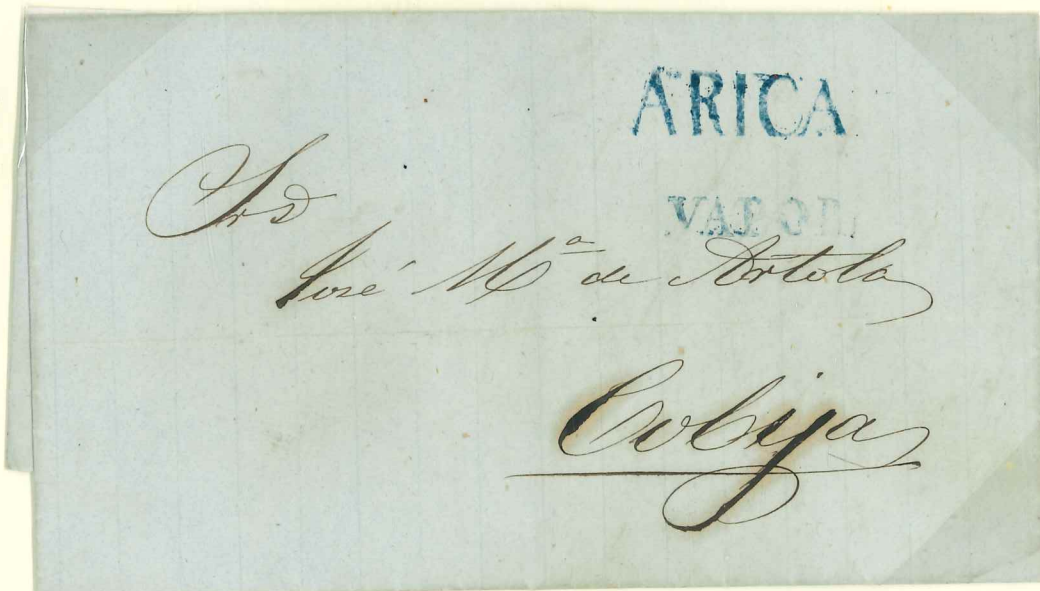 ARICA
VAPOR
Srd
José Mª de Artola
Cobija